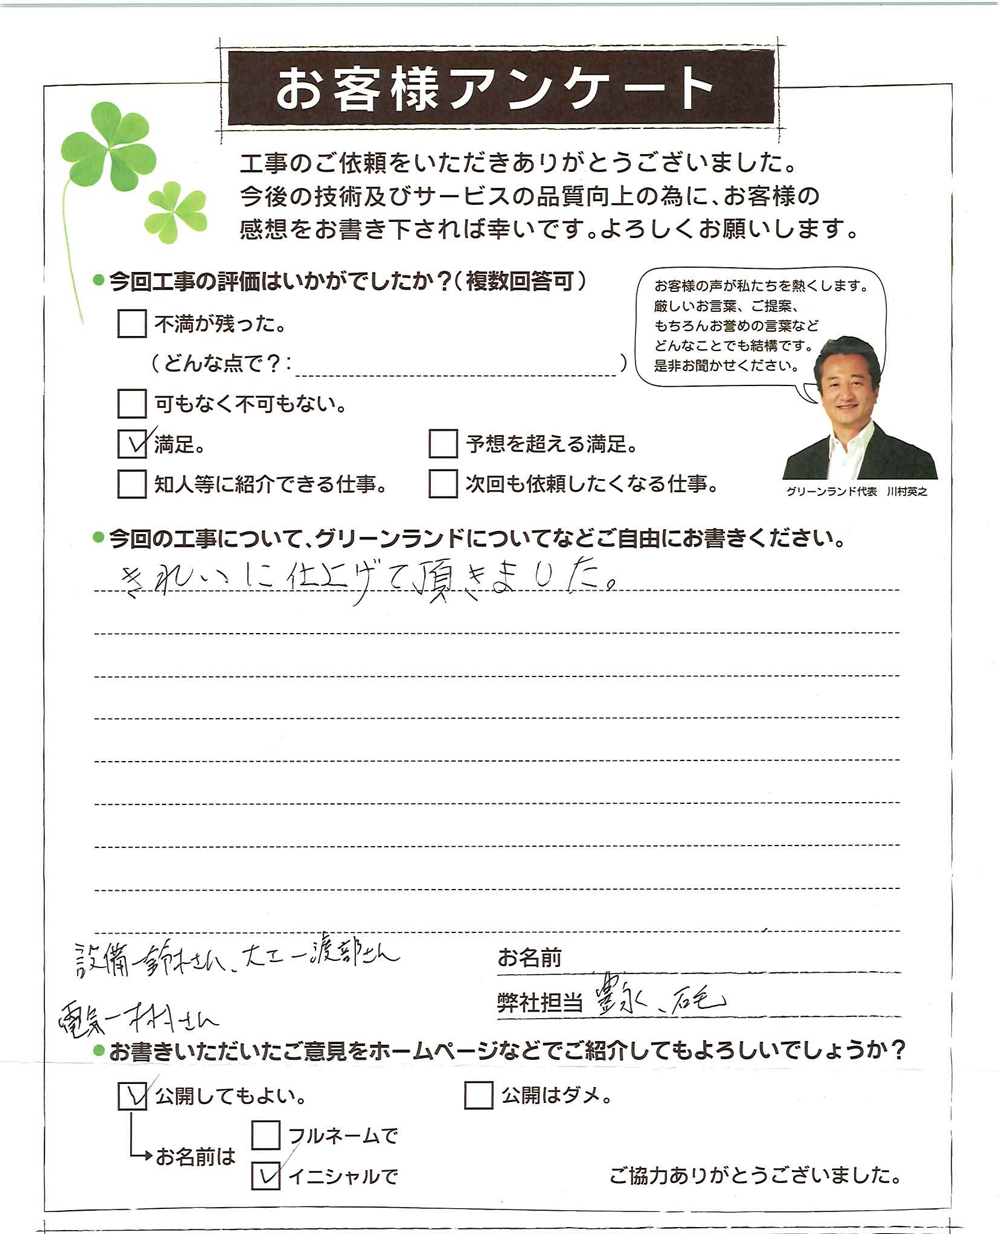 お客様アンケート
工事のご依頼をいただきありがとうございました。
今後の技術及びサービスの品質向上の為に、お客様の
感想をお書き下されば幸いです。よろしくお願いします。
●今回工事の評価はいかがでしたか？（複数回答可）
不満が残った。
（どんな点で？：　）
可もなく不可もない。
満足。
予想を超える満足。
知人等に紹介できる仕事。
次回も依頼したくなる仕事。
お客様の声が私たちを熱くします。
厳しいお言葉、ご提案、
もちろんお誉めの言葉など
どんなことでも結構です。
是非お聞かせください。
グリーンランド代表　川村英之
●今回の工事について、グリーンランドについてなどご自由にお書きください。
きれいに仕上げて頂きました。
設備ー鈴木さん、大工ー渡部さん
電気ー木村さん
お名前
弊社担当 豊永、石毛
●お書きいただいたご意見をホームページなどでご紹介してもよろしいでしょうか？
公開してもよい。
公開はダメ。
お名前は
フルネームで
イニシャルで
ご協力ありがとうございました。